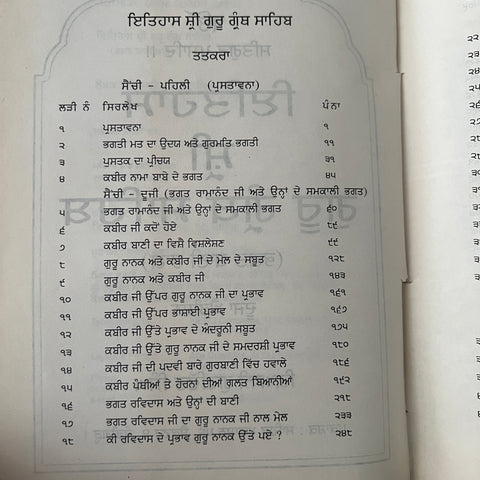 ਇਤਿਹਾਸ ਸ਼੍ਰੀ ਗੁਰੂ ਗ੍ਰੰਥ ਸਾਹਿਬ
ਤਤਕਰਾ
ਸੈਂਚੀ - ਪਹਿਲੀ (ਪ੍ਰਸਤਾਵਨਾ)
ਲੜੀ ਨੰ ਸਿਰਲੇਖ ਪੰਨਾ
੧ ਪ੍ਰਸਤਾਵਨਾ ੧
੨ ਭਗਤੀ ਮਤ ਦਾ ਉਦਯ ਅਤੇ ਗੁਰਮਤਿ ਭਗਤੀ ੧੧
੩ ਪੁਸਤਕ ਦਾ ਪ੍ਰੀਚਯ ੩੧
੪ ਕਬੀਰ ਨਾਮਾ ਬਾਬੇ ਦੇ ਭਗਤ ੪੫
ਸੈਂਚੀ - ਦੂਜੀ (ਭਗਤ ਰਾਮਾਨੰਦ ਜੀ ਅਤੇ ਉਨ੍ਹਾਂ ਦੇ ਸਮਕਾਲੀ ਭਗਤ)
੫ ਭਗਤ ਰਾਮਾਨੰਦ ਜੀ ਅਤੇ ਉਨ੍ਹਾਂ ਦੇ ਸਮਕਾਲੀ ਭਗਤ ੬੦
੬ ਕਬੀਰ ਜੀ ਕਦੋਂ ਹੋਏ ੮੬
੭ ਕਬੀਰ ਬਾਣੀ ਦਾ ਵਿਸ਼ੈ ਵਿਸਲੇਸ਼ਣ ੯੯
੮ ਗੁਰੂ ਨਾਨਕ ਅਤੇ ਕਬੀਰ ਜੀ ਦੇ ਮੇਲ ਦੇ ਸਬੂਤ ੧੨੮
੯ ਗੁਰੂ ਨਾਨਕ ਅਤੇ ਕਬੀਰ ਜੀ ੧੪੩
੧੦ ਕਬੀਰ ਜੀ ਉੱਪਰ ਗੁਰੂ ਨਾਨਕ ਜੀ ਦਾ ਪ੍ਰਭਾਵ ੧੬੧
੧੧ ਕਬੀਰ ਜੀ ਉੱਪਰ ਭਾਸ਼ਾਈ ਪ੍ਰਭਾਵ ੧੬੭
੧੨ ਕਬੀਰ ਜੀ ਉੱਤੇ ਪ੍ਰਭਾਵ ਦੇ ਅੰਦਰੂਨੀ ਸਬੂਤ ੧੭੫
੧੩ ਕਬੀਰ ਜੀ ਉੱਤੇ ਗੁਰੂ ਨਾਨਕ ਜੀ ਦੇ ਸਮਦਰਸ਼ੀ ਪ੍ਰਭਾਵ ੧੮੦
੧੪ ਕਬੀਰ ਜੀ ਦੀ ਪਦਵੀ ਬਾਰੇ ਗੁਰਬਾਣੀ ਵਿੱਚ ਹਵਾਲੇ ੧੮੬
੧੫ ਕਬੀਰ ਪੰਥੀਆਂ ਤੇ ਹੋਰਨਾਂ ਦੀਆਂ ਗਲਤ ਬਿਆਨੀਆਂ ੧੯੨
੧੬ ਭਗਤ ਰਵਿਦਾਸ ਅਤੇ ਉਨ੍ਹਾਂ ਦੀ ਬਾਣੀ ੨੧੮
੧੭ ਭਗਤ ਰਵਿਦਾਸ ਜੀ ਦਾ ਗੁਰੂ ਨਾਨਕ ਜੀ ਨਾਲ ਮੇਲ ੨੩੩
੧੮ ਕੀ ਰਵਿਦਾਸ ਦੇ ਪ੍ਰਭਾਵ ਗੁਰੂ ਨਾਨਕ ਉੱਤੇ ਪਏ ? ੨੪੮